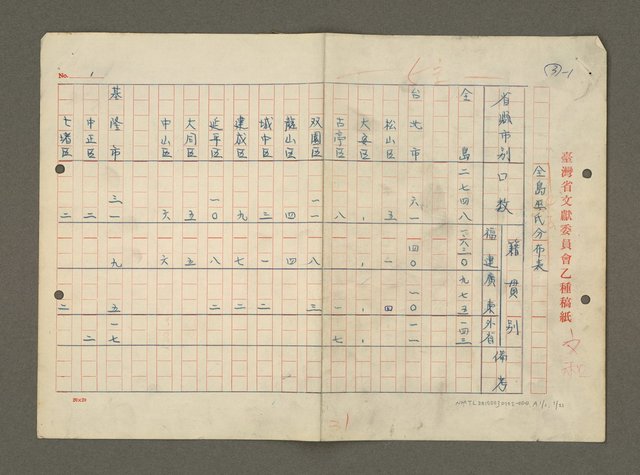 ③-1
臺灣省文獻委員會乙種稿紙
全島巫氏分布表
省縣市別 口數 籍貫別 福建 廣東 外省 備考
全島 二七四八 一六三〇 九七五 一四三
台北市 六一 四〇 一〇 一一
松山區 五 一 四
大安區
古亭區 八 一 七
双園區 一一 八 三
龍山區 四 四
城中區 三 一 二
建成區 九 七 二
延平區 一〇 八 二
大同區 五 五
中山區 六 六
基隆市 三一 九 五 一七
中正區 二 二
七堵區 二 二
No. 1
31